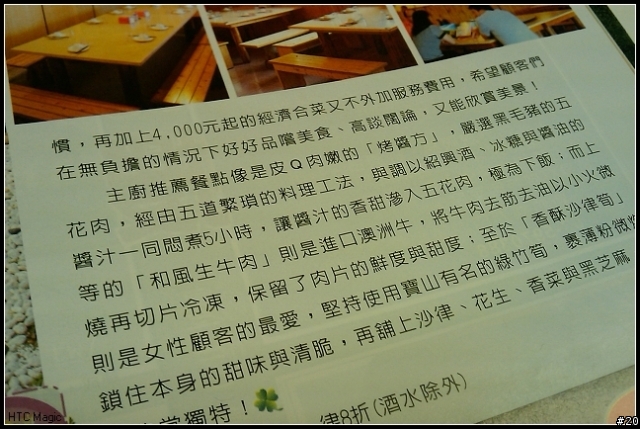 慣，再加上4,000元起的經濟合菜又不外加服務費用，希望顧客們
在無負擔的情況下好好品嚐美食、高談闊論，又能欣賞美景！
主廚推薦餐點像是皮Q肉嫩的「烤醬方」，嚴選黑毛豬的五
花肉，經由五道繁瑣的料理工法，與調以紹興酒、冰糖與醬油的
醬汁一同悶煮5小時，讓醬汁的香甜滲入五花肉，極為下飯；而上
等的「和風生牛肉」則是進口澳洲牛，將牛肉去筋去油以小火微
燒再切片冷凍，保留了肉片的鮮度與甜度；至於「香酥沙律筍」
則是女性顧客的最愛，堅持使用寶山有名的綠竹筍，裹薄粉微
鎖住本身的甜味與清脆，再舖上沙律、花生、香菜與黑芝麻
獨特！
律8折(酒水除外)
HTC Magic
#20